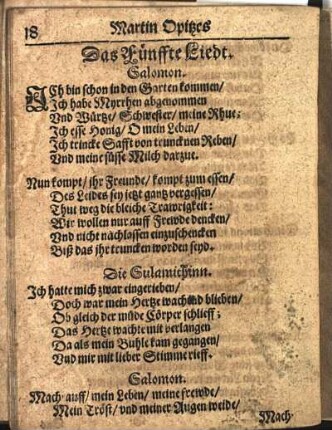 18 Martin Opitzes
Das Fünffte Liedt.
Salomon.
ICh bin schon in den Garten kommen/
Ich habe Myrrhen abgenommen
Vnd Würtze/ Schwester/ meine Rhue:
Ich esse Honig/ O mein Leben/
Ich trincke Safft von truncknen Reben/
Vnd meine süsse Milch darzue.
Nun kompt/ ihr Freunde/ kompt zum essen/
Des Leides sey jetzt gantz vergessen/
Thut weg die bleiche Trawrigkeit:
Wir wollen nur auff Frewde dencken/
Vnd nicht nachlassen einzuschencken
Biß das jhr truncken worden seyd.
Die Sulamithinn.
Ich hatte mich zwar eingerieben/
Doch war mein Hertze wachend blieben/
Ob gleich der müde Cörper schlieff:
Das Hertze wachte mit verlangen
Da als mein Buhle kam gegangen/
Vnd mir mit lieber Stimme rieff.
Salomon.
Mach auff/ mein Leben/ meine frewde/
Mein Tröst/ vnd meiner Augen weide/
Mach